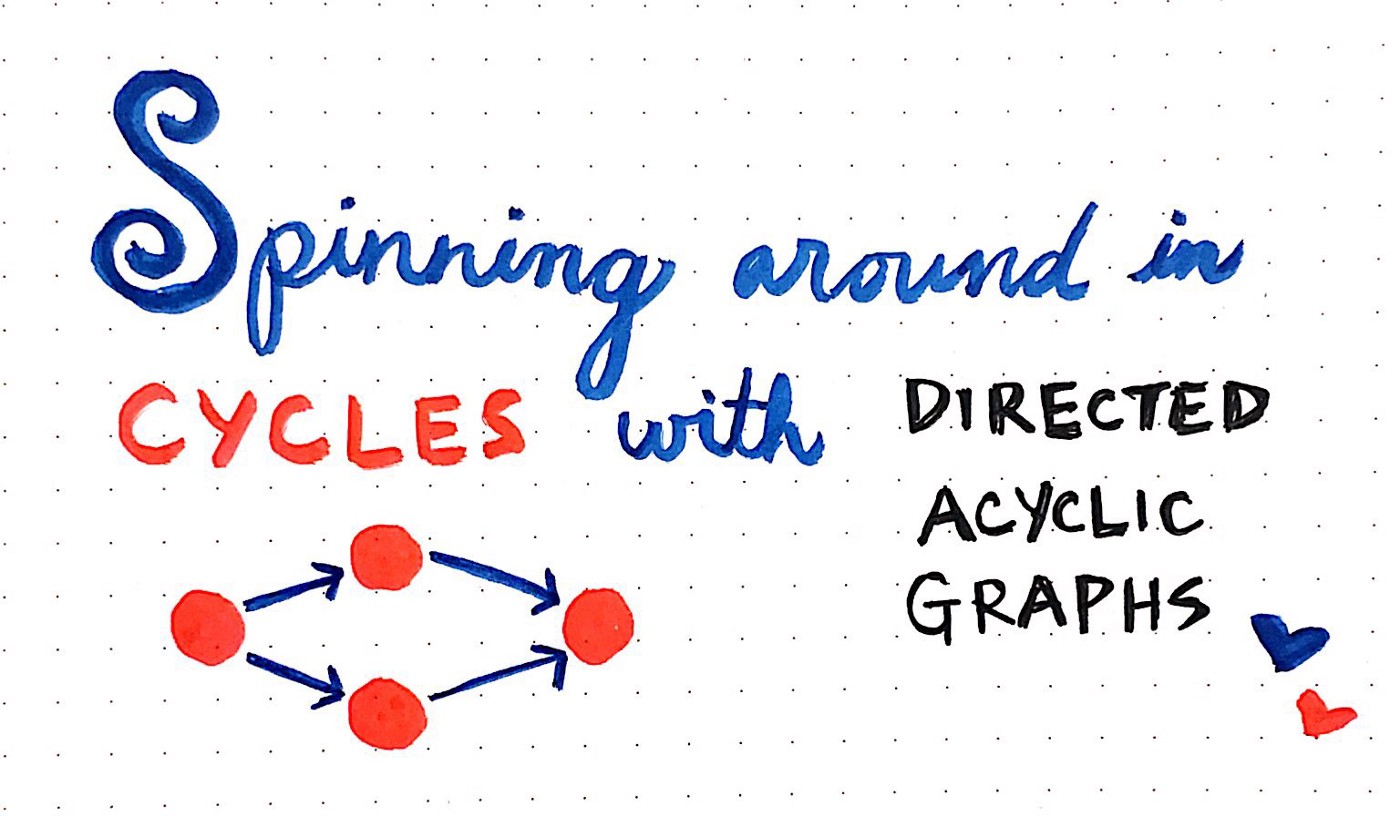 Spinning around in
CYCLES with DIRECTED
ACYCLIC
GRAPHS